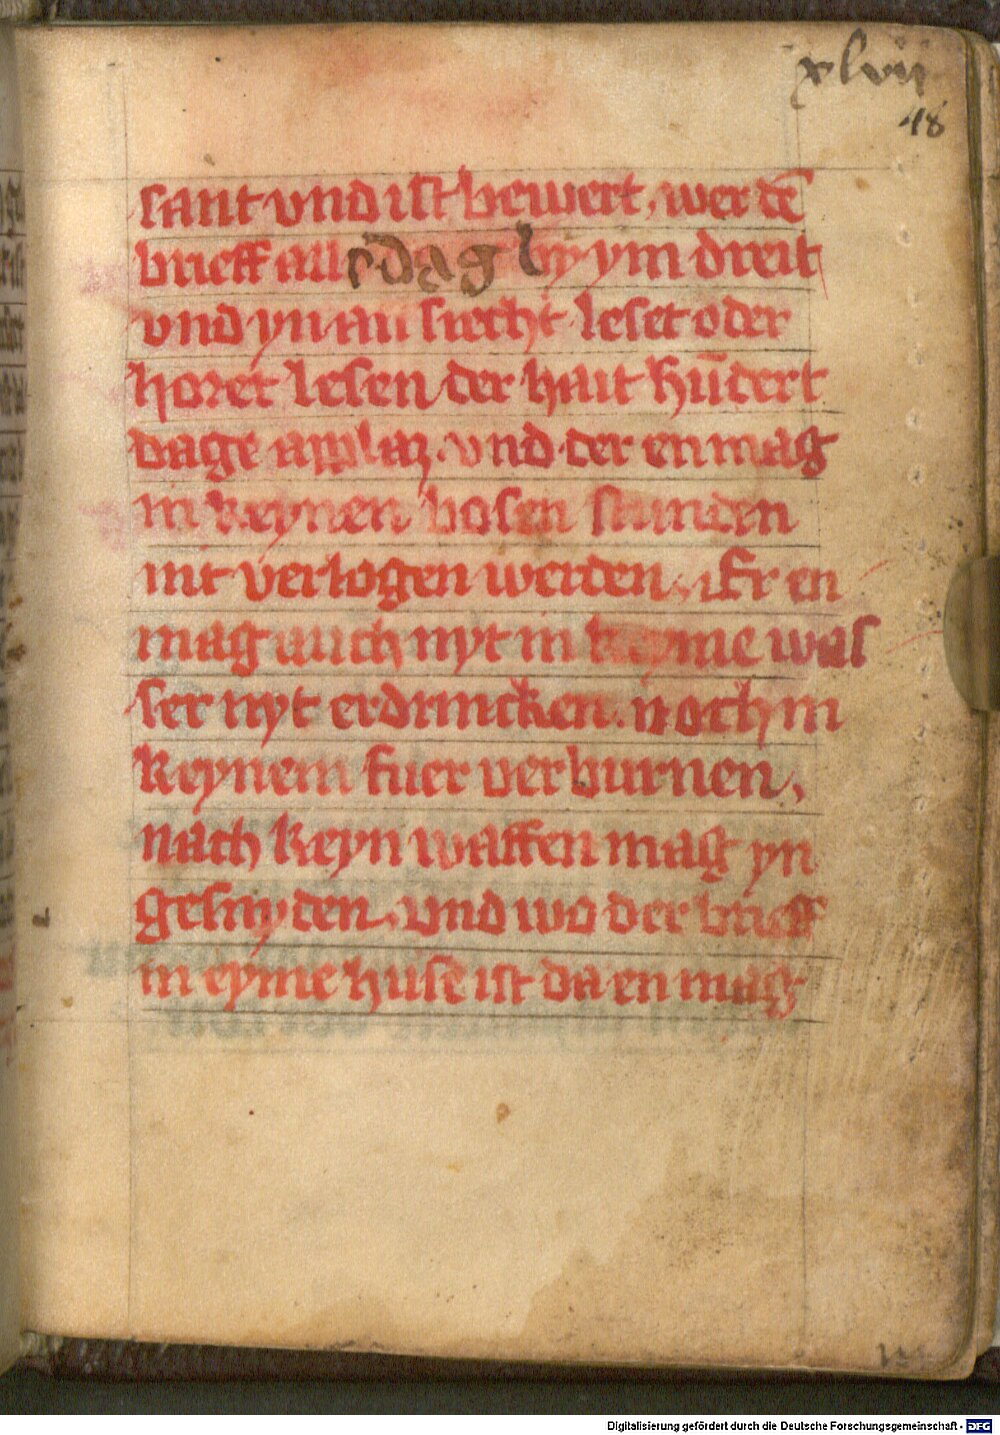 xlvii
48
sant vnd ist bewert, wer dē
brieff alle dag by ym dreit
vnd yn an siecht leset oder
horet lesen der hait hūdert
dage applaz. vnd der en mag
in keynen bosen stunden
nit verlogen werden. Er en
mag auch nyt in keyme was
ser nyt erdrincken. noch in
keynem fuer verburnen,
nach keyn waffen mag yn
gesnyden. vnd wo der brieff
in eyme huse ist da en mag
Digitalisierung gefördert durch die Deutsche Forschungsgemeinschaft - DFG